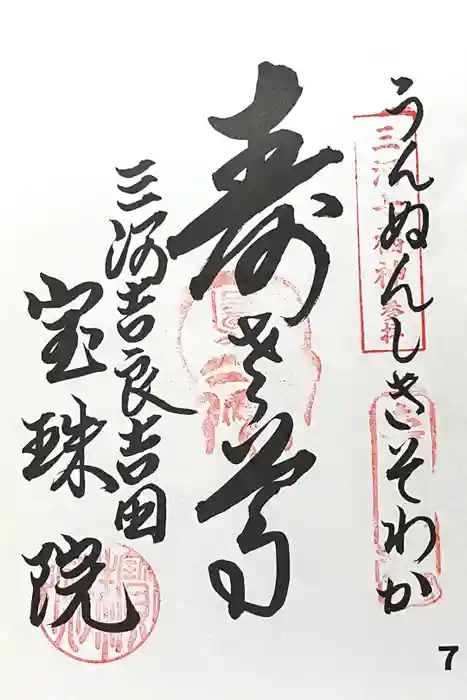 うんぬんしきそわか
三河七福神
寿老尊
三河吉良吉田
宝珠院
7